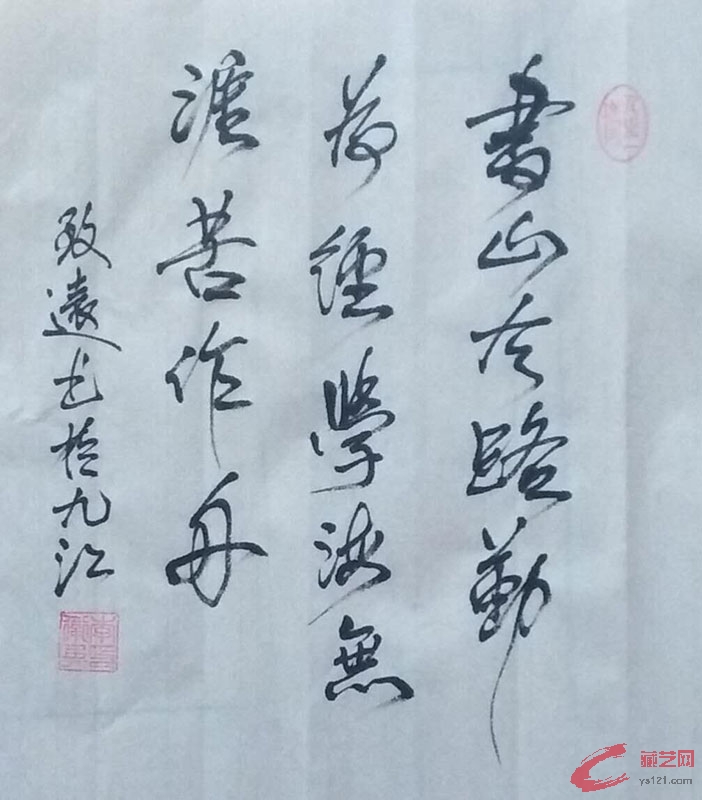 書山有路勤
為徑學海無
涯苦作舟
致遠書於九江
藏艺网
ys121.com